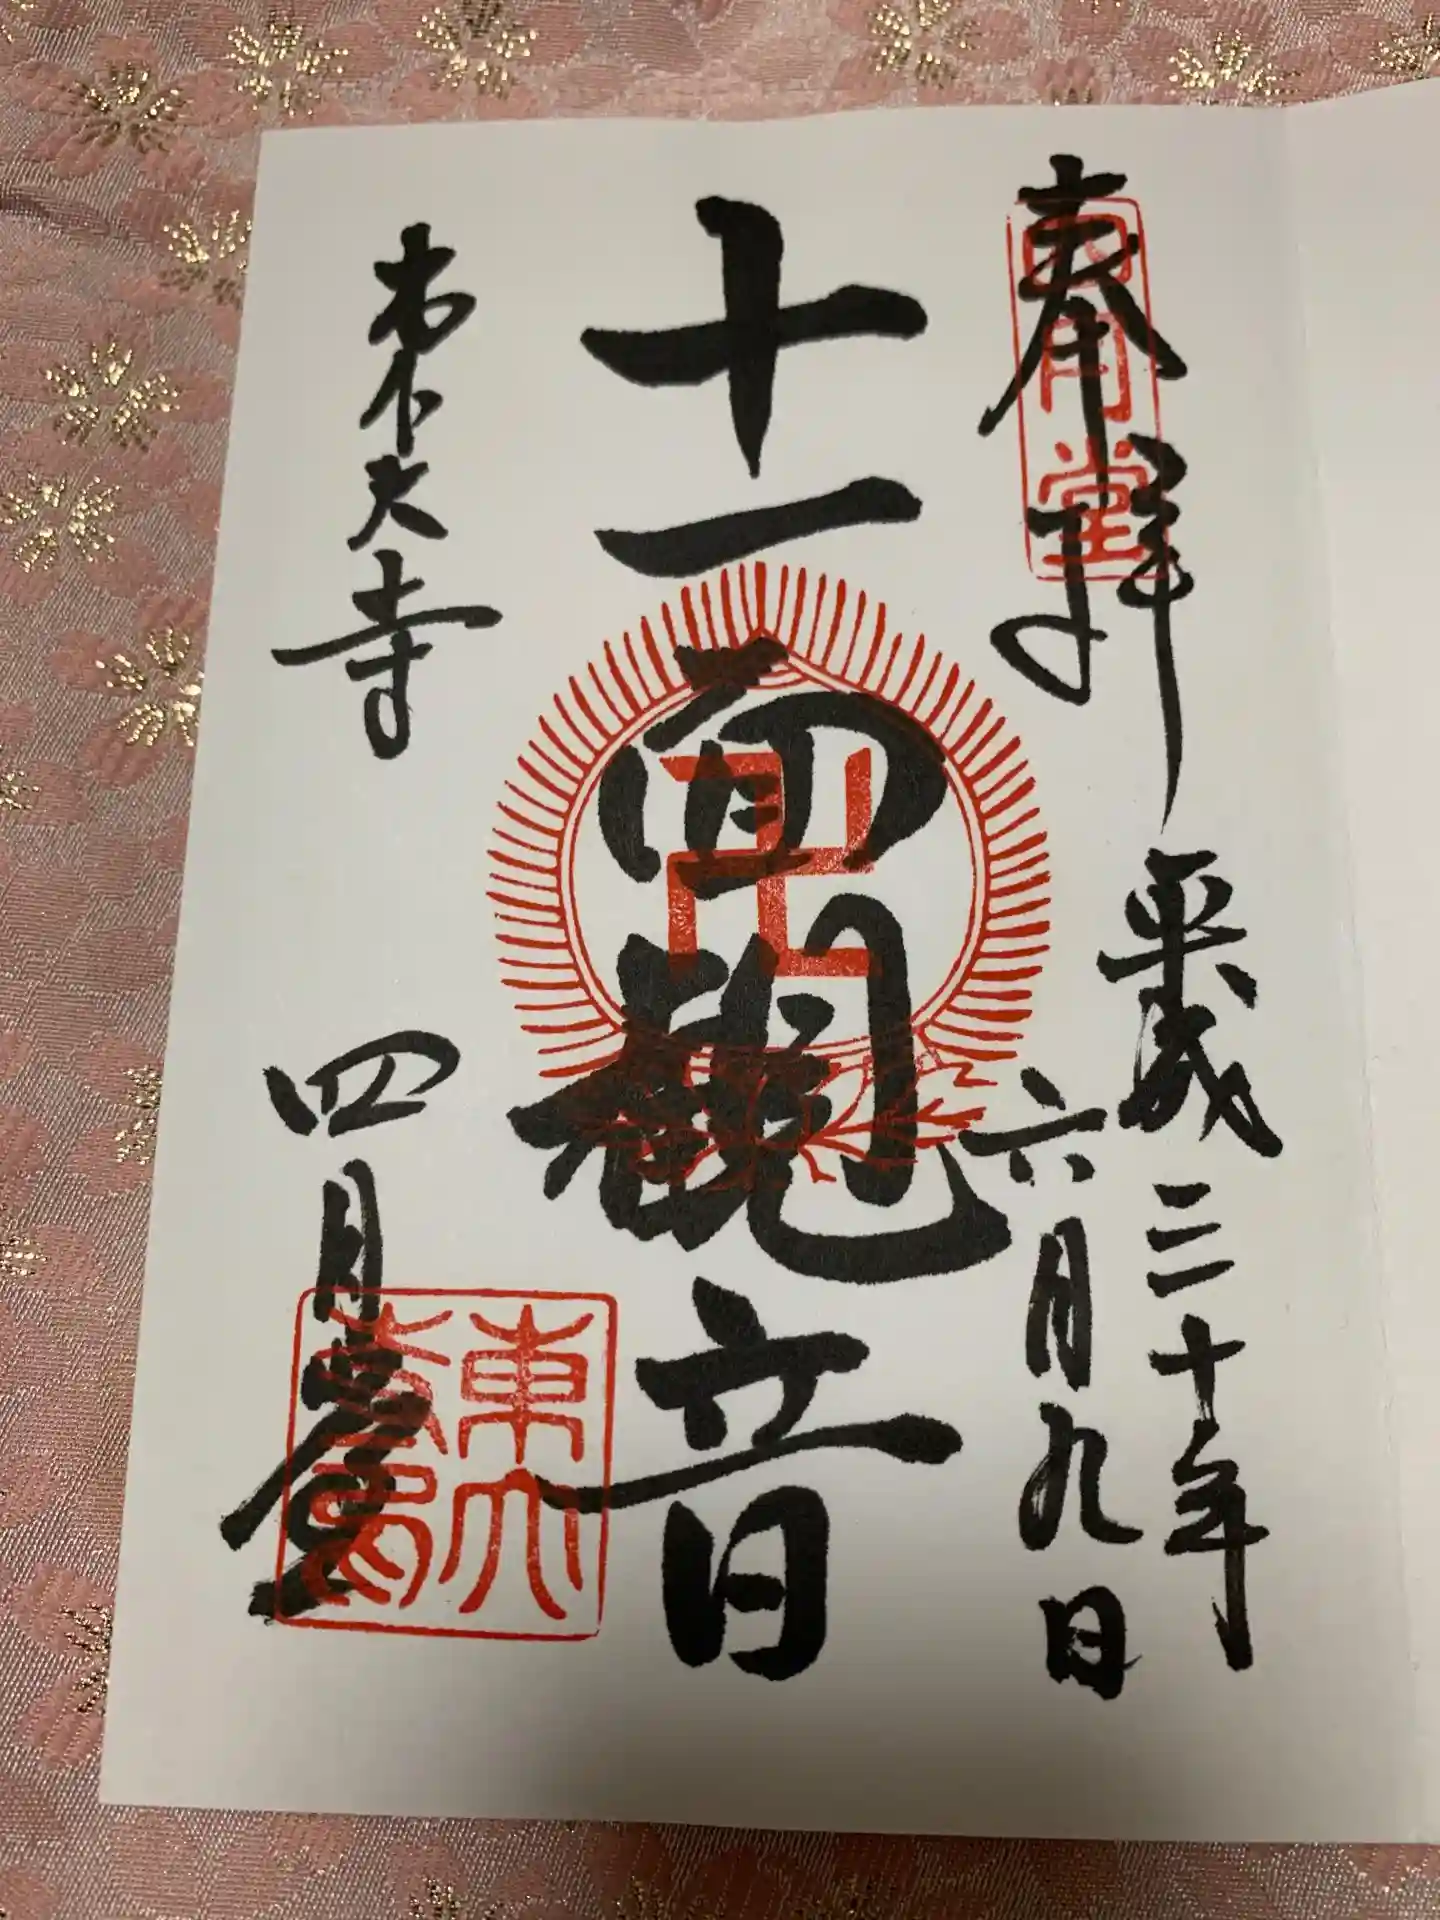 奉拝
四月堂
平成三十年
六月九日
十一面観音
卍
東大寺
四月堂
東大寺